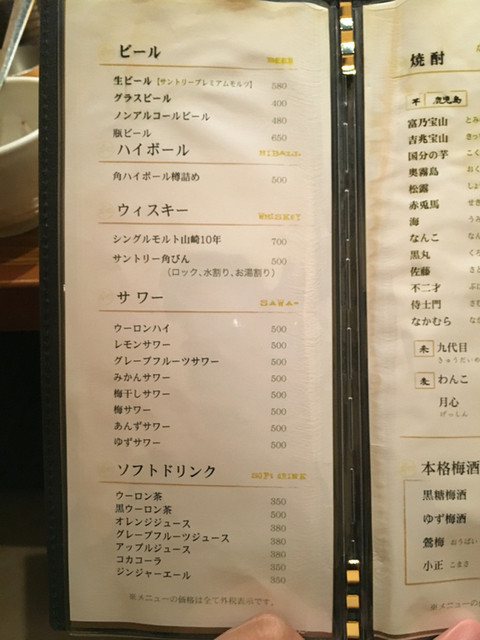 ビール BEER
生ビール【サントリープレミアムモルツ】 580
グラスビール 400
ノンアルコールビール 480
瓶ビール 650
ハイボール
角ハイボール樽詰め 500
ウィスキー WHISKEY
シングルモルト山崎10年 700
サントリー角びん 500
(ロック、水割り、お湯割り)
サワー
ウーロンハイ 500
レモンサワー 500
グレープフルーツサワー 500
みかんサワー 500
梅干しサワー 500
梅サワー 500
あんずサワー 500
ゆずサワー 500
ソフトドリンク SOFT DRINK
ウーロン茶 350
黒ウーロン茶 500
オレンジジュース 380
グレープフルーツジュース 380
アップルジュース 380
コカコーラ 350
ジンジャーエール 350
※メニューの価格は全て外税表示です。
焼酎
鹿児島
富乃宝山 とみ
吉兆宝山 きっ
国分の芋 こく
奥霧島 おく
松露 しょ
赤兎馬 せき
海 うみ
なんこ なん
黒丸 くろ
佐藤 さと
不二才
侍士門
なかむら
米 九代目
きゅうだいめ
麦 わんこ
月心
げっしん
本格梅酒
黒糖梅酒
ゆず梅酒
鶯梅 おうばい
小正 こまさ
※メニューの